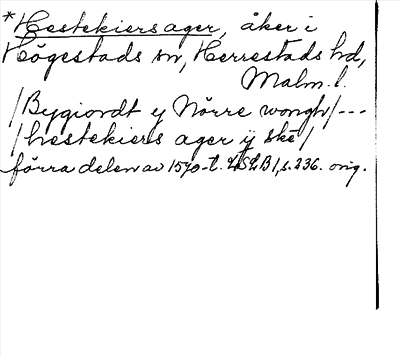 *Hestekiersager, åker i
Högestads sn, Herrestads hd,
Malm. l.
/Bygiordt y Nörre wongh/---
/hestekiers ager ÿ ske/
förra delen av 1570-t. LStLB 1, s. 236. orig.